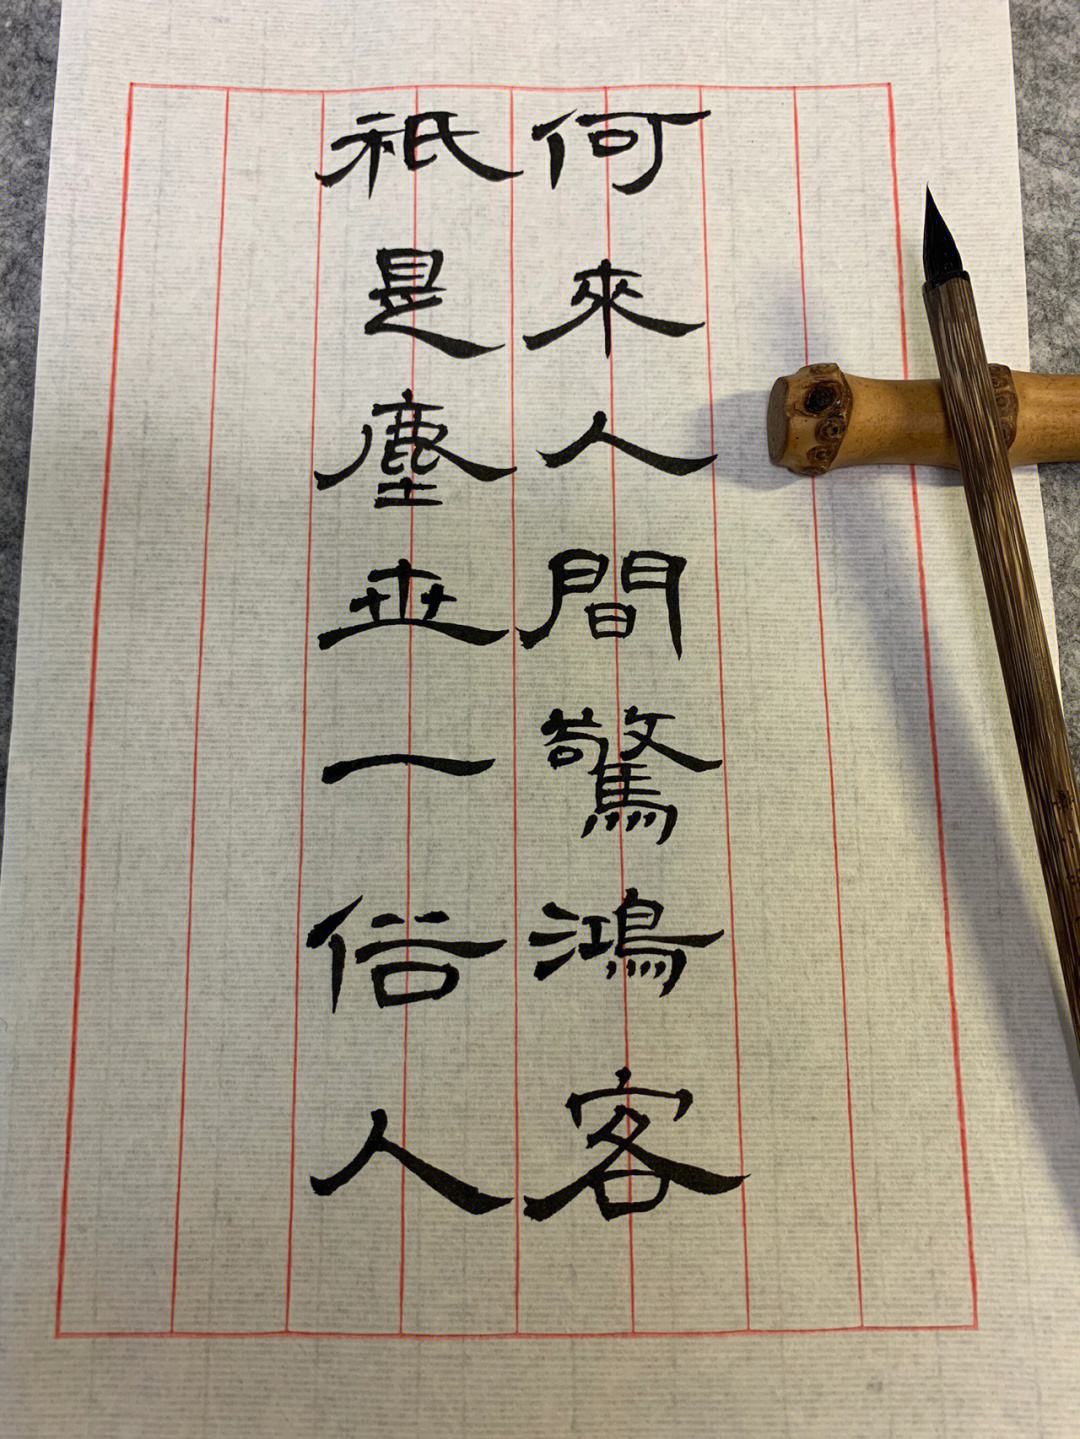 何來人間驚鴻客
祇是塵世一俗人